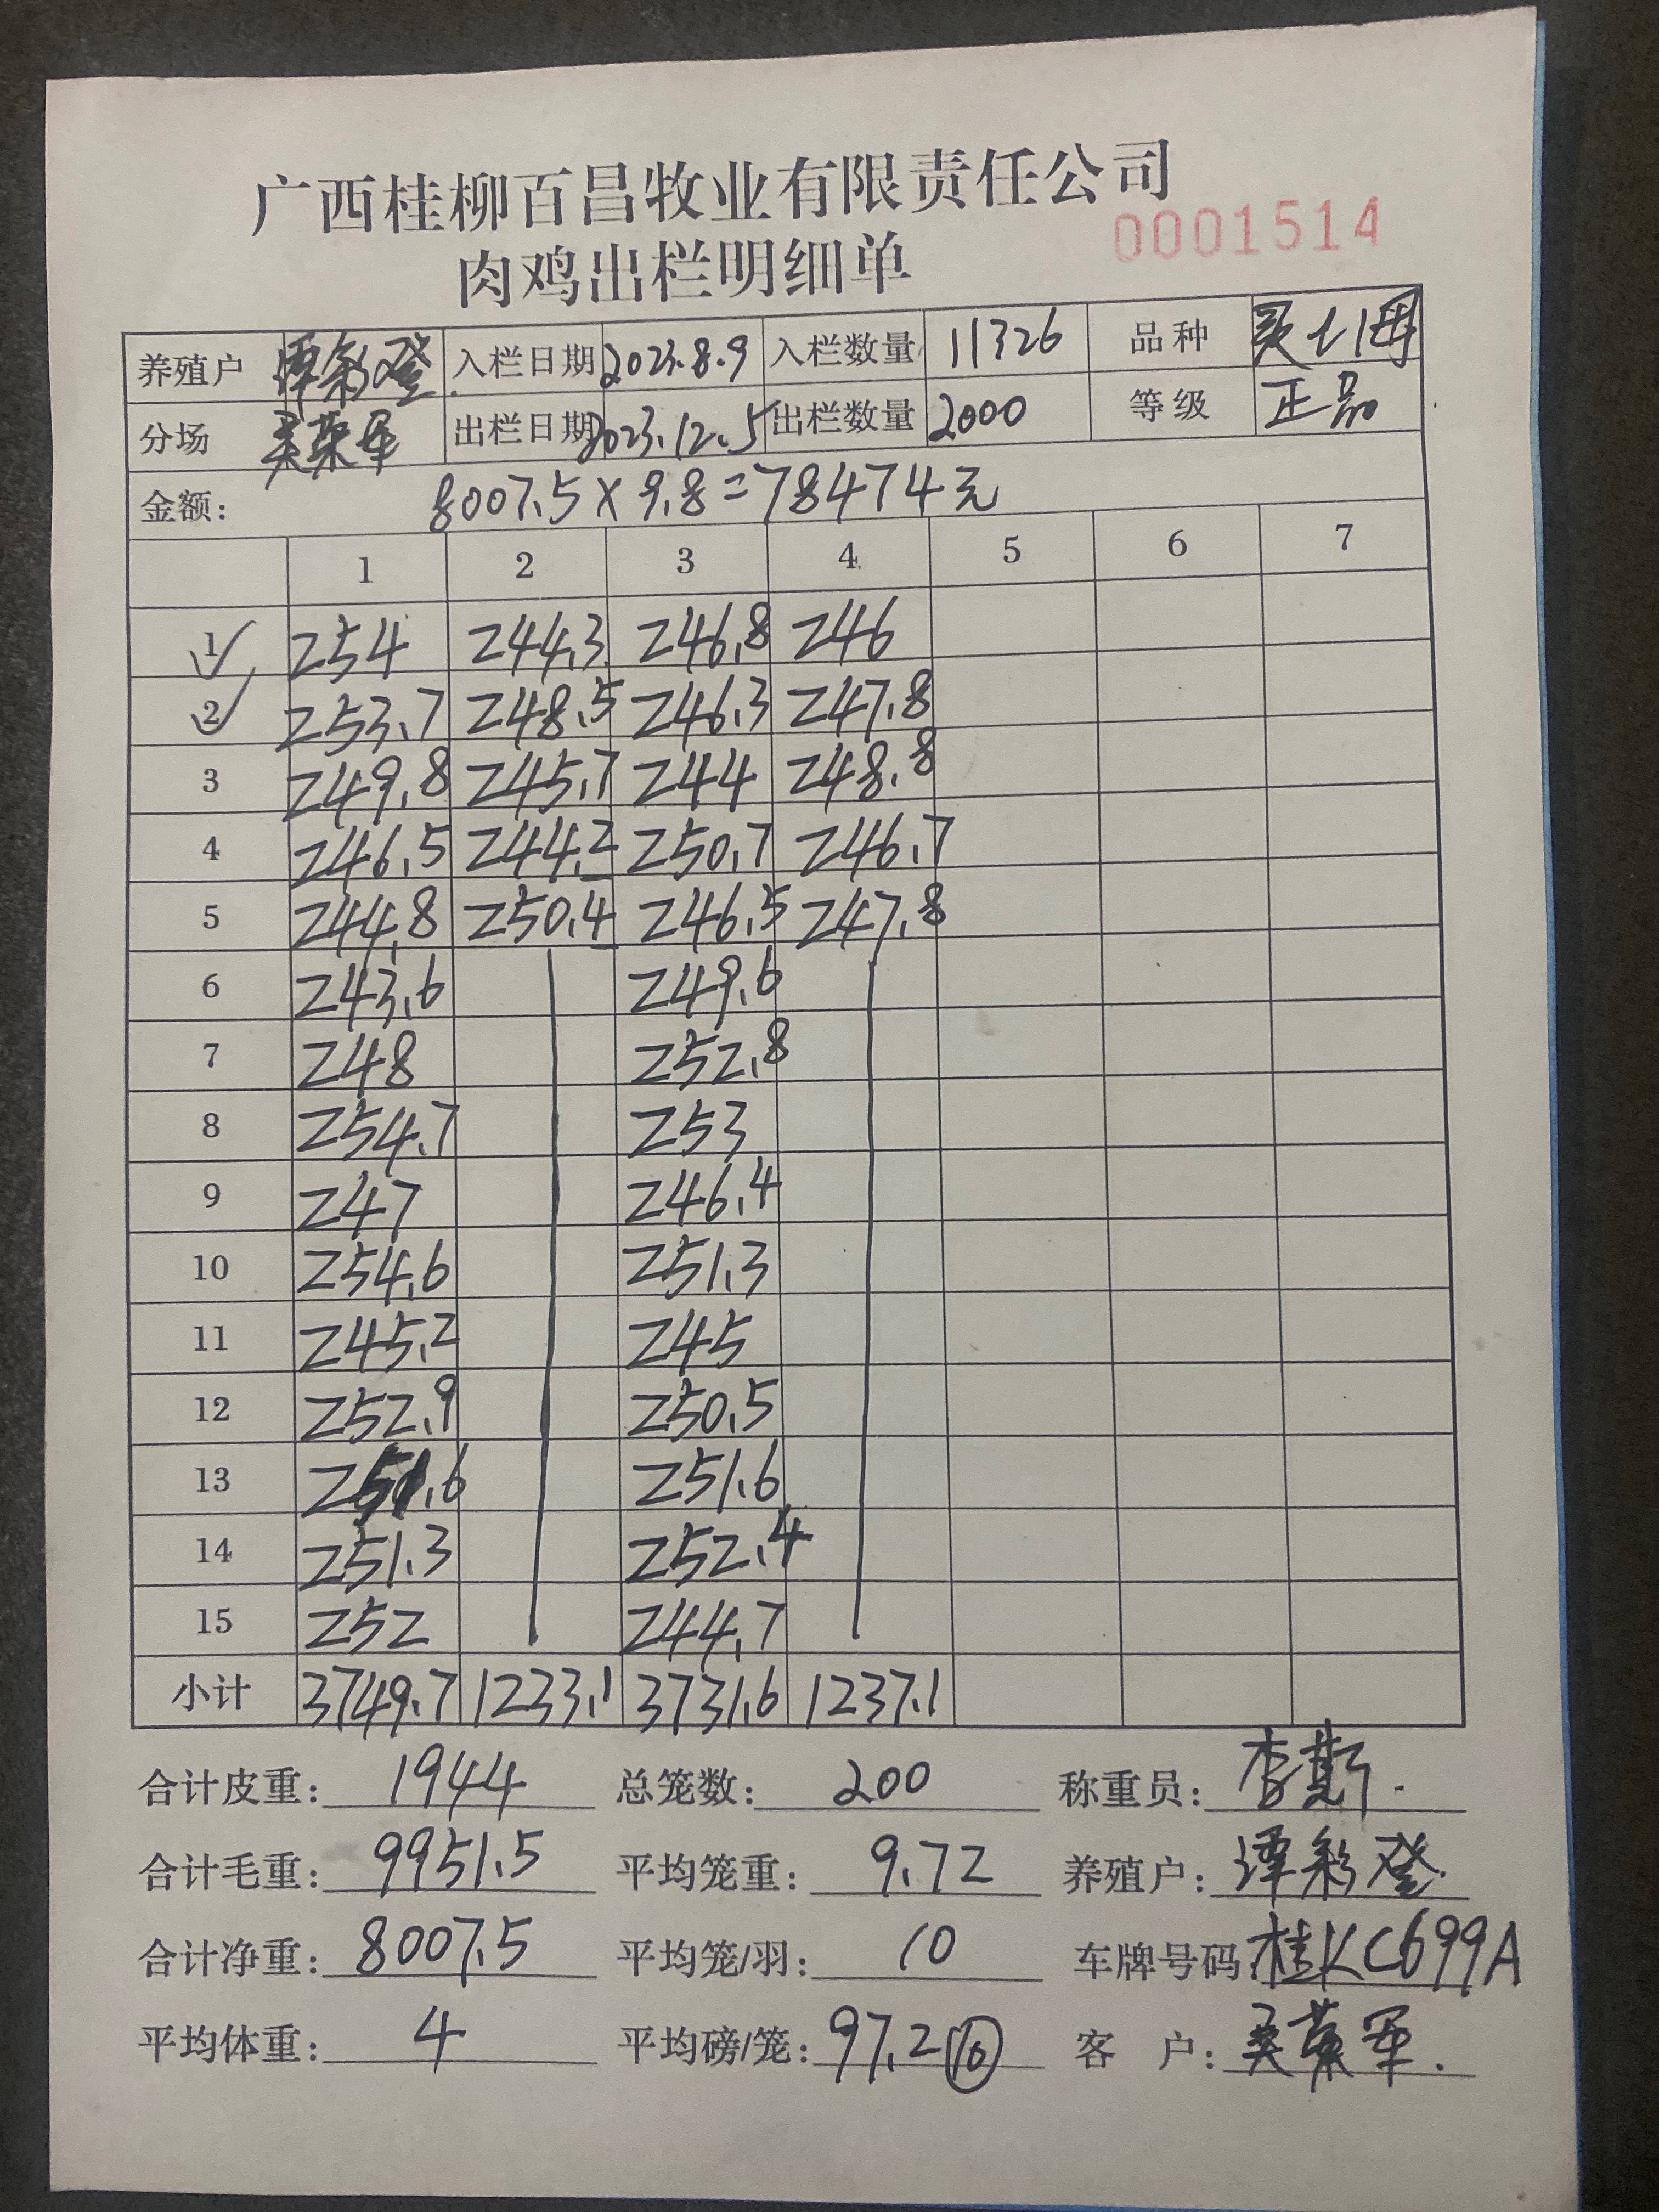 广西桂柳百昌牧业有限责任公司
0001514
肉鸡出栏明细单
养殖户 谭彩登 入栏日期 2023.8.9 入栏数量 11326 品种 灵山母
分场 吴荣军 出栏日期 2023.12.5 出栏数量 2000 等级 正品
金额: 8007.5×9.8=78474元
1 2 3 4 5 6 7
1 254 244.3 246.8 246
2 253.7 248.5 246.3 247.8
3 249.8 245.7 244 248.8
4 246.5 244.2 250.7 246.7
5 244.8 250.4 246.5 247.8
6 243.6 249.6
7 248 252.8
8 254.7 253
9 247 246.4
10 254.6 251.3
11 245.2 245
12 252.9 250.5
13 251.6 251.6
14 251.3 252.4
15 252 244.7
小计 3749.7 1233.1 3731.6 1237.1
合计皮重: 1944 总笼数: 200 称重员: 李
合计毛重: 9951.5 平均笼重: 9.72 养殖户: 谭彩登.
合计净重: 8007.5 平均笼/羽: 10 车牌号码: 桂KC699A
平均体重: 4 平均磅/笼: 97.2 ⑩ 客 户: 吴荣军.